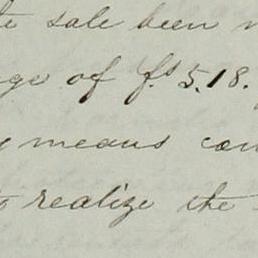 sale been
of f.s 5.18.
means
realize the